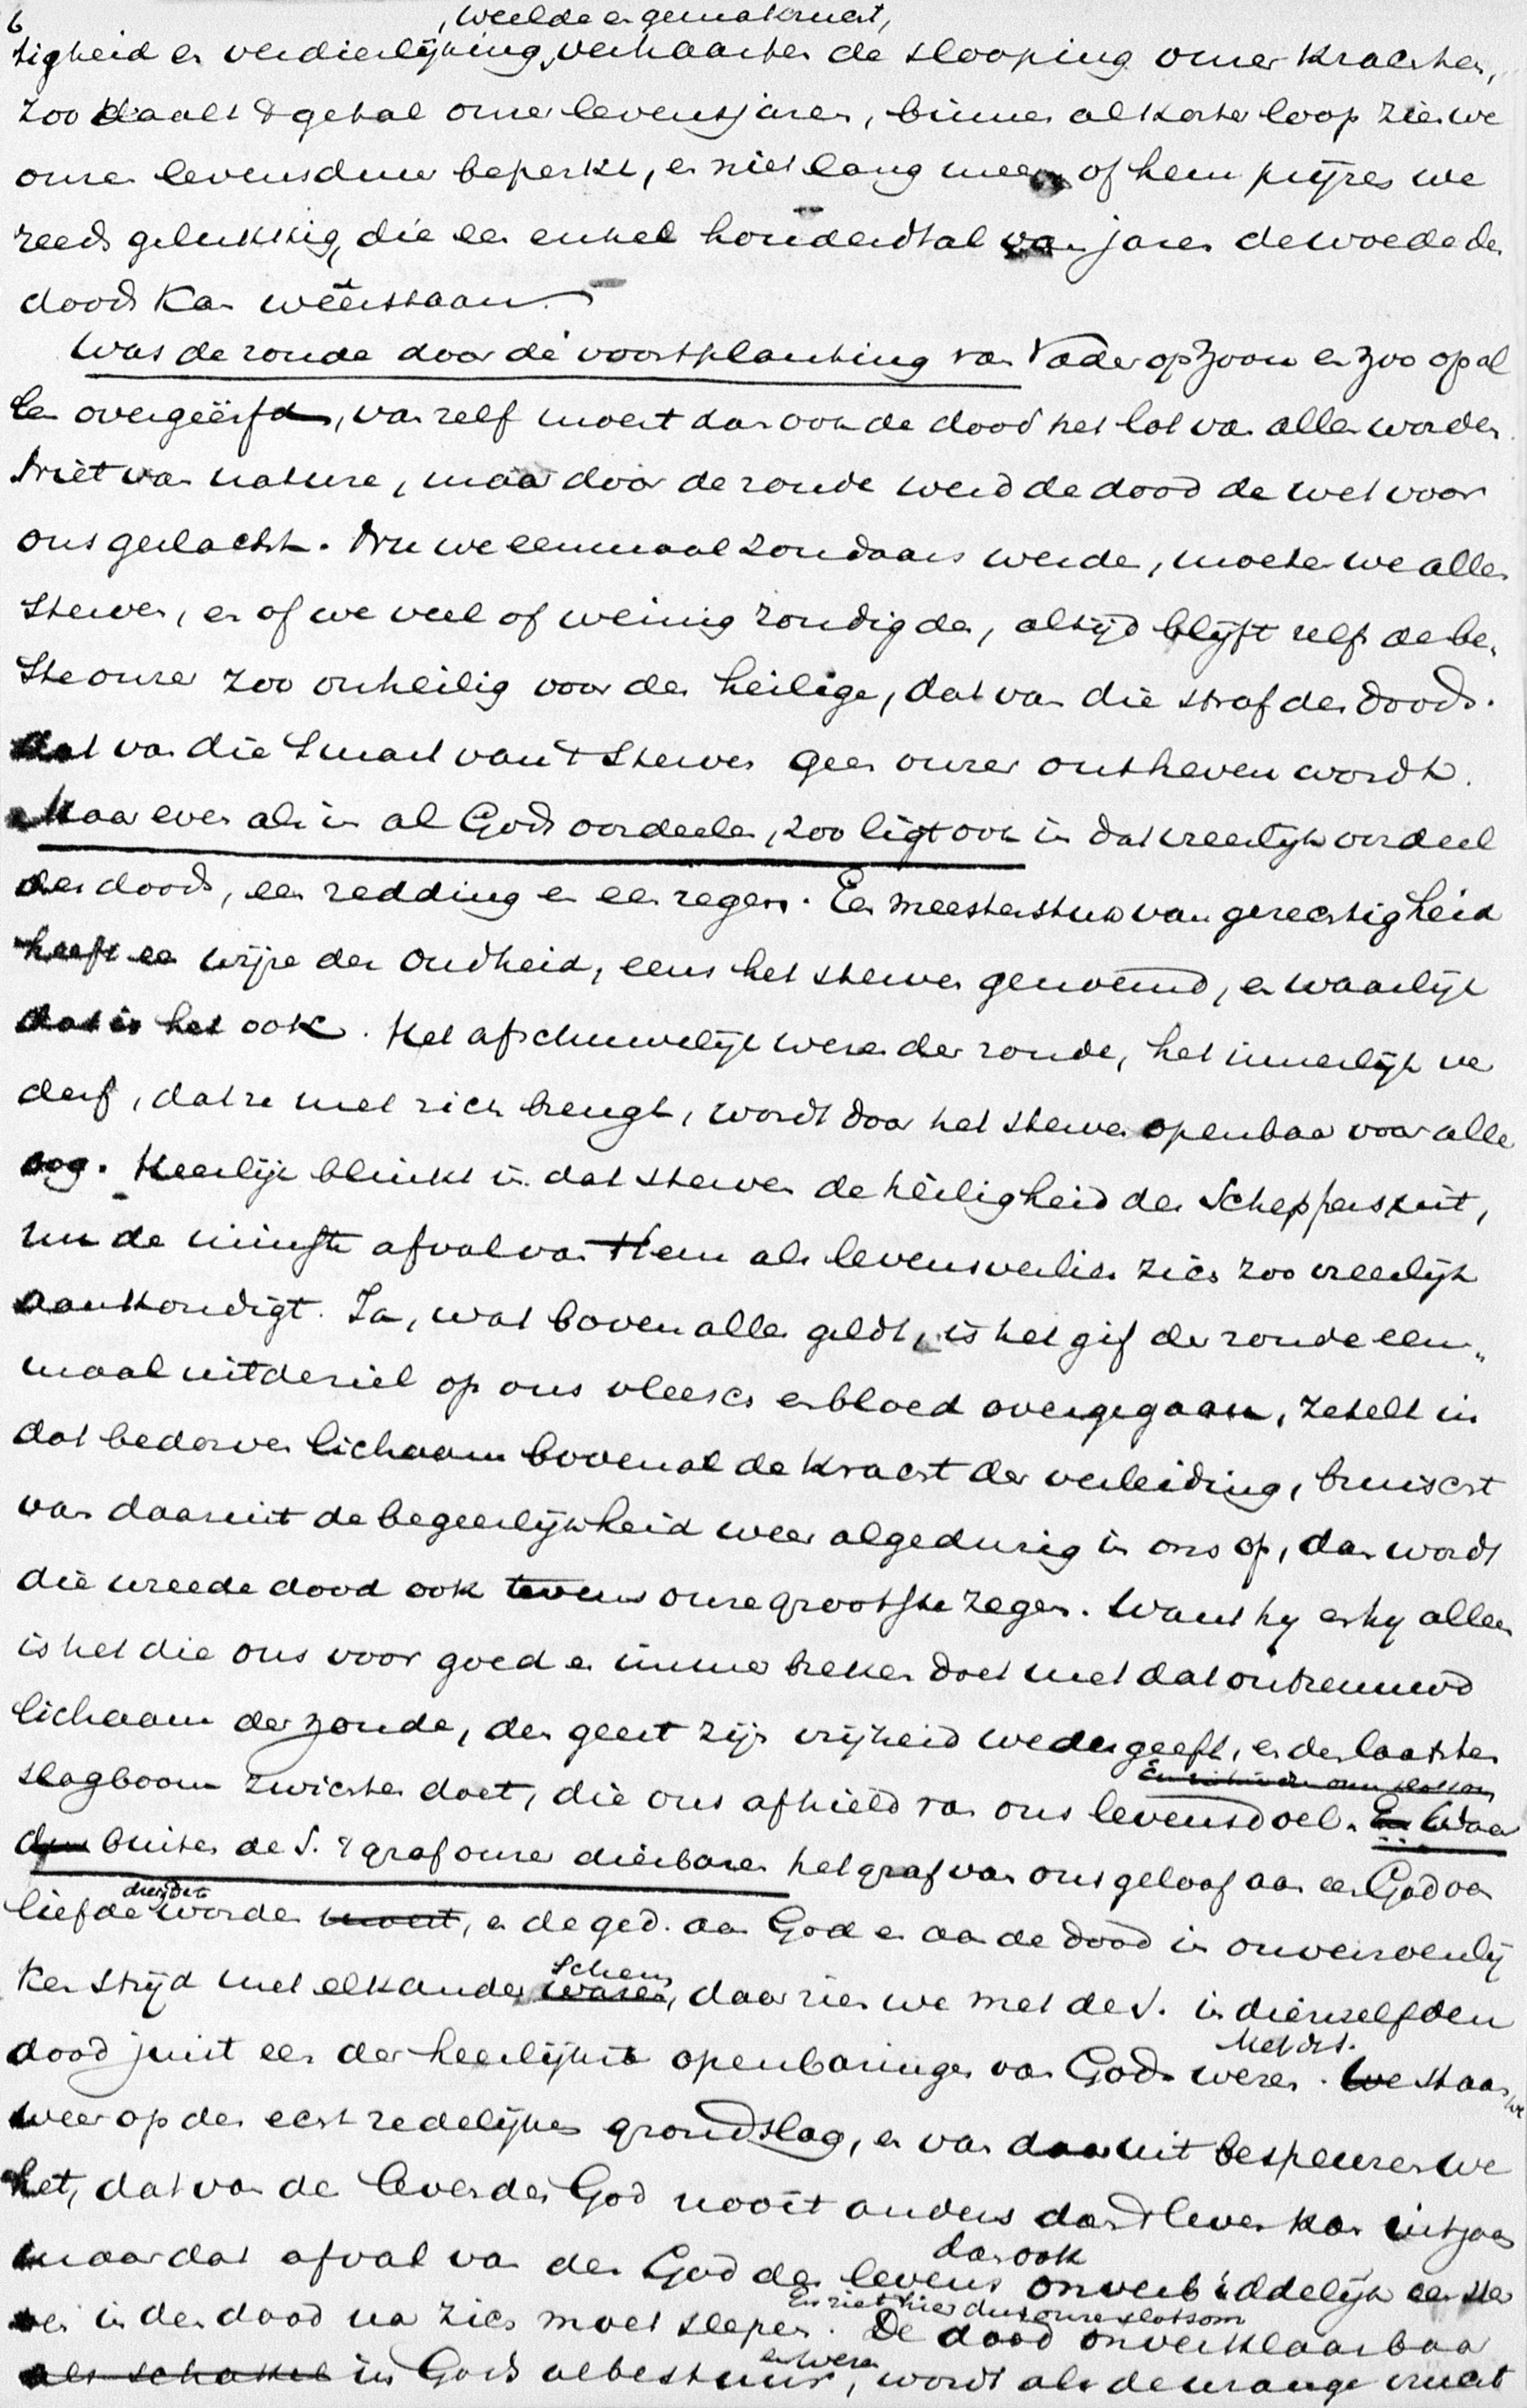 6
, weelde en gemakzucht,
tigheid en verdierlijking, verhaasten de slooping onzer krachten,
zoo daalt 't getal onzer levensjaren, binnen al korter loop zien we
onzen levensduur beperkt, en niet lang meer of hem prijzen we
reeds gelukkig, die een enkel honderdtal van jaren de woede des
doods kan wëerstaan.
Was de zonde door de voortplanting van Vader op Zoon en zoo op al
len overgeërfd, van zelf moest dan ook de dood het lot van allen worden.
Niet van nature, maar door de zonde werd de dood de wet voor
ons geslacht. Nu we eenmaal zondaars werden, moeten we allen
sterven, en of we veel of weinig zondigden, altijd blijft zelfs de be-
ste onzer zoo onheilig voor den heilige, dat van die straf des doods.
dat van die smart van 't sterven geen onzer ontheven wordt.
Maar even als in al Gods oordeelen, zoo ligt ook in dat vreeslijk oordeel
des doods, een redding en een zegen. Een meesterstuk van gerechtigheid
heeft een wijze der oudheid, eens het sterven genoemd, en waarlijk
dat is het ook. Het afschuwelijk wezen der zonde, het innerlijk ver
derf, dat ze met zich brengt, wordt door het sterven openbaar voor aller
oog. Heerlijk blinkt in dat sterven de heiligheid des Scheppers uit,
nu de minste afval van Hem als levensverlies zich zoo vreeslijk
aankondigt. Ja, wat boven alles geldt, is het gif der zonde een-
maal uit de ziel op ons vleesch en bloed overgegaan, zetelt in
dat bedorven lichaam bovenal de kracht der verleiding, bruischt
van daaruit de begeerlijkheid weer algedurig in ons op, dan wordt
die wreede dood ook tevens onze grootste zegen. Want hy en hy alleen
is het die ons voor goed en immer breken doet met dat ontzenuwd
lichaam der zonde, den geest zijn vrijheid wedergeeft, en den laatsten
En ziehier dan onze slotsom
slagboom zwichten doet, die ons afhield van ons levensdoel. En Waar
dus buiten de S. 't graf onzer dierbaren het graf van ons geloof aan een God van
dreigde te
liefde worden moest, en de ged. aan God en aan de dood in onverzoenlij
scheen
ken strijd met elkander waren, daar zien we met de S. in dienzelfden
dood juist een der heerlijkste openbaringen van Gods wezen.
Met dit.
We staan we
weer op den echt redelijken grondslag, en van daaruit bespeuren we
het, dat van de levenden God nooit anders dan 't leven kan uitgaan
dan ook
maar dat afval van den God des levens onverbiddelijk een ster
ven in den dood na zich moet slepen.
En ziet hier dus onze slotsom
De dood onverklaarbaar
en wezen
als schakel in Gods albestuur, wordt als de wrange vrucht